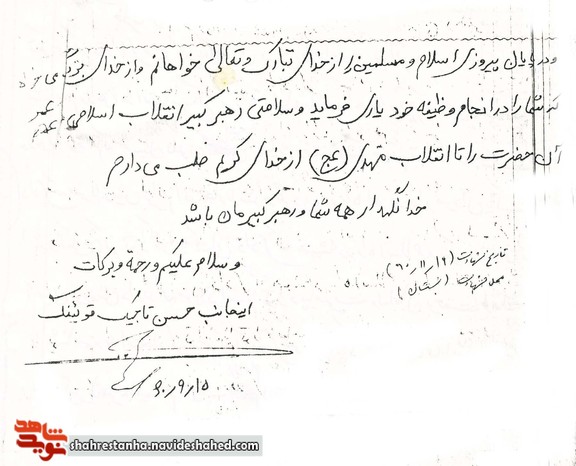 و در پایان پیروزی اسلام و مسلمین را از خدای تبارک و تعالی خواهانم و از خدای بزرگ می‌خو
که شما را در انجام وظیفه خود یاری فرماید و سلامتی رهبر کبیر انقلاب اسلامی عمر
آن حضرت را تا انقلاب مهدی (عج) از خدای کریم طلب می‌دارم
خدا نگهدار همه شما و رهبر کبیرمان باشد
و سلام علیکم و رحمة و برکات
تاریخ شهادت (۶۰/۱۱/۱۹)
محل شهادت ( )
اینجانب حسن تاجیک قوئینک
۶۰/۹/۱۵
نوید شاهد
shahrestanha.navideshahed.com